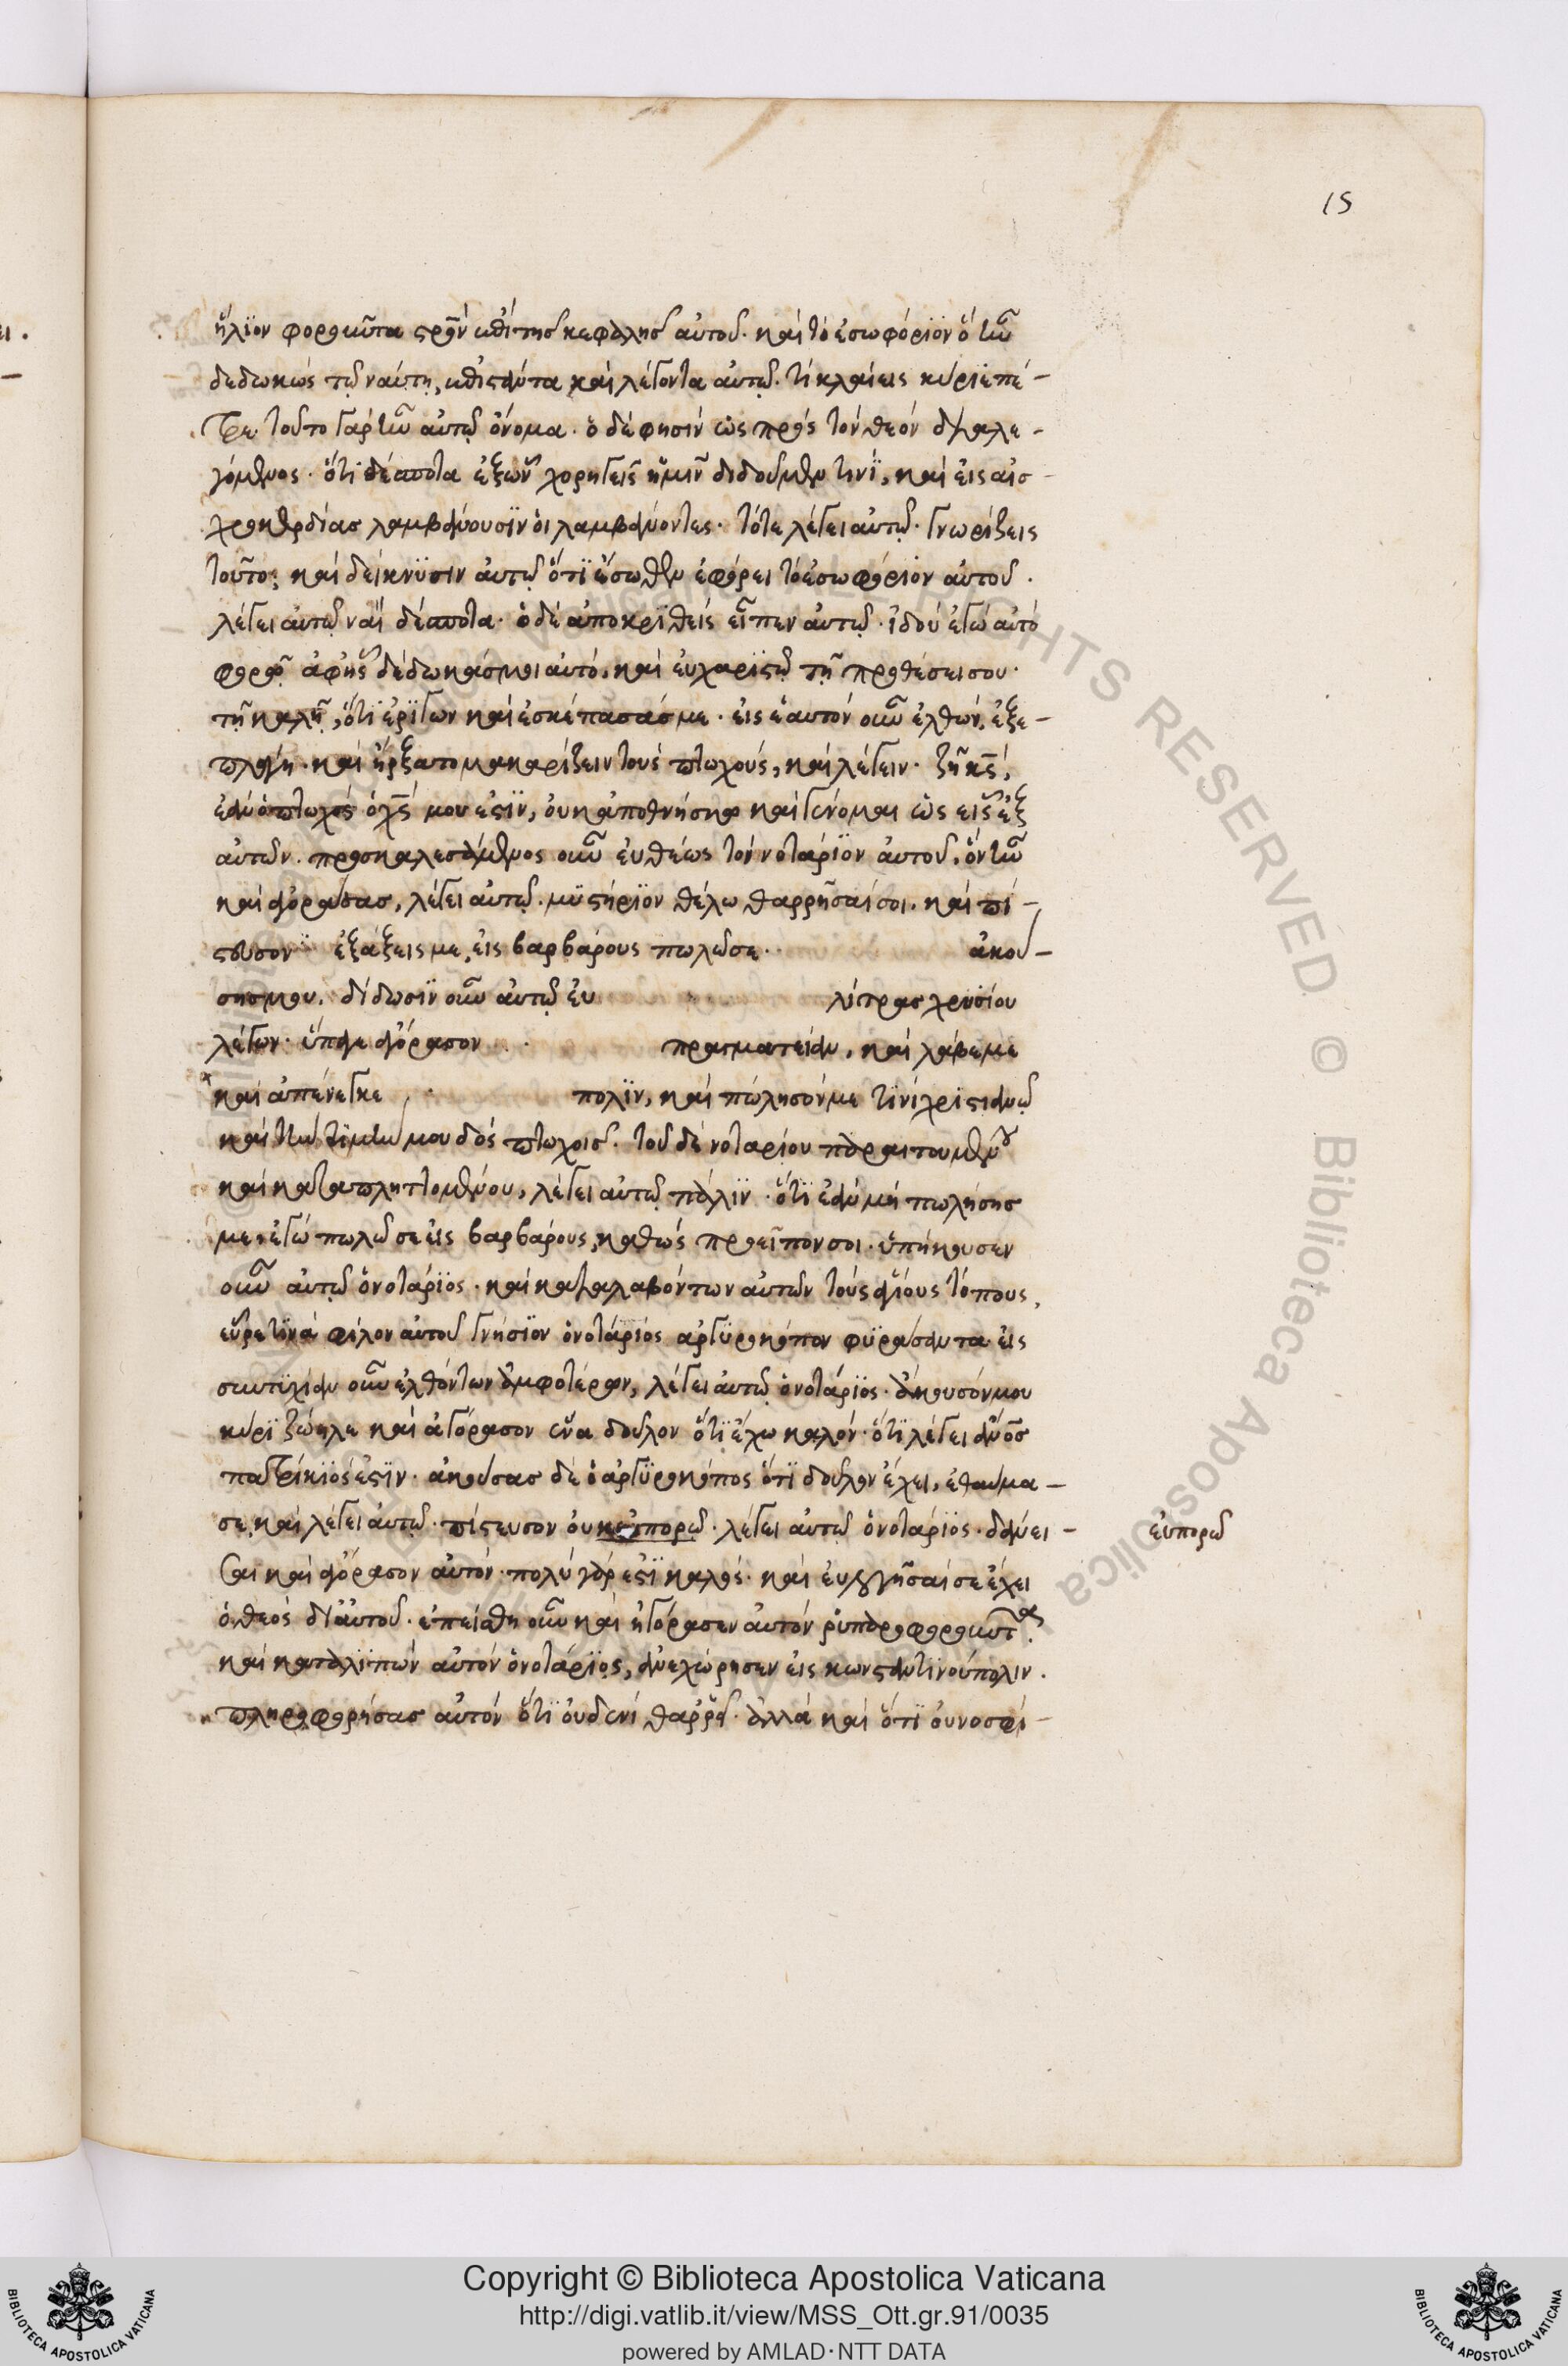 15
ἥλϊον φοροῦντα ϛρὸν ἐπὶ τῆς κεφαλῆς αὐτοῦ. καὶ τὸ ἐσωφόριϊον ὃ ἦν
δεδωκὼς τῷ ναύτῃ, ἐπιϛάντα καὶ λέγοντα αὐτῷ. τί κλαίεις κύριε πέ-
τρε τοῦτο γὰρ ἦν αὐτῷ ὄνομα. ὁ δέ φησιν ὡς πρὸς τὸν θεὸν διαλε-
γόμενος. ὅτι δέσποτα ἐξ ὧν χορηγεῖς ἡμῖν διδοῦμεν τινὶ, καὶ εἰς αἰσ-
χροκερδίας λαμβάνουσϊν οἱ λαμβάνοντες. τότε λέγει αὐτῷ. γνωρίζεις
τοῦτο; καὶ δείκνϋσιν αὐτῷ ὅτϊ ἔσωθεν ἐφόρει τὸ ἐσωφόριον αὐτοῦ.
λέγει αὐτῷ ναί δέσποτα. ὁ δὲ ἀποκρϊθεὶς εἶπεν αὐτῷ. ἰδοὺ ἐγὼ αὐτὸ
φορῶ ἀφῆς δέδωκάς μοι αὐτό. καὶ εὐχαρϊϛῶ τῇ προθέσει σου.
τῇ καλῇ, ὅτϊ ἐρίγων καὶ ἐσκέπασάς με. εἰς ἑαυτὸν οὖν ἐλθὼν, ἐξε-
πλάγη. καὶ ἤρξατο μακαρίζειν τοὺς πτωχούς, καὶ λέγειν. ζῇ κς,
ἐὰν ὁ πτωχός ὁ χς μου ἐϛϊν, οὐκ ἀποθνήσκω καὶ γένομαι ὡς εἷς ἐξ
αὐτῶν. προσκαλεσάμενος οὖν εὐθέως τὸν νοτάρϊον αὐτοῦ, ὃν ἦν
καὶ ἀγοράσας, λέγει αὐτῷ. μϋϛήριϊον θέλω θαρρῆσαί σοι. καὶ πί-
ϛευσον ἐξάξεις με, εἰς βαρβάρους πωλῶ σε. ἀκού-
σης μου. δίδωσϊν οὖν αὐτῷ ἐν λίτρας χρυσίου
λέγων. ὕπαγε ἀγόρασον πραγματείαν, καὶ λάβε με
καὶ ἀπένεγκε πόλϊν, καὶ πώλησόν με τϊνὶ χρϊϛιανῷ
καὶ τὴν τϊμήν μου δὸς πτωχοῖς. τοῦ δὲ νοταρίου παραιτουμένου
καὶ καταπληττομένου, λέγει αὐτῷ πάλϊν. ὅτϊ ἐὰν μὴ πωλήσης
με, ἐγὼ πωλῶ σε εἰς βαρβάρους, καθὼς προεῖπόν σοι. ὑπήκουσεν
οὖν αὐτῷ ὁ νοτάριϊος. καὶ καταλαβόντων αὐτῶν τοὺς ἁγίους τόπους,
εὗρε τϊνὰ φίλον αὐτοῦ γνήσϊον ὁ νοτάριος ἀργϋροκόπον φϋράσαντα εἰς
συντϋχίαν οὖν ἐλθόντων ἀμφοτέρων, λέγει αὐτῷ ὁ νοτάριϊος. ἄκουσόν μου
κύρϊ ζώηλε καὶ ἀγόρασον ἕνα δοῦλον ὅτϊ ἔχω καλόν. ὅτϊ λέγει ἀνὸς
πατρίκϊός ἐϛϊν. ἀκούσας δὲ ὁ ἀργϋροκόπος ὅτϊ δοῦλον ἔχει, ἐθαύμα-
σε, καὶ λέγει αὐτῷ. πίϛευσον οὐκ εὐπορῶ. λέγει αὐτῷ ὁ νοτάριϊος. δάνει-
σαι καὶ ἀγόρασον αὐτόν. πολὺ γάρ ἐϛϊ καλός. καὶ εὐλογῆσαί σε ἔχει
ὁ θεὸς δι' αὐτοῦ. ἐπείσθη οὖν καὶ ἠγόρασεν αὐτὸν ῥυπαροφοροῦντα.
καὶ καταλϊπὼν αὐτὸν ὁ νοτάριϊος, ἀνεχώρησεν εἰς κωνϛαντϊνούπολιν.
πληροφορήσας αὐτόν ὅτϊ οὐδενὶ θαρρεῖ. ἀλλὰ καὶ ὅτϊ οὐ νοσφί-
εὐπορῶ
Copyright © Biblioteca Apostolica Vaticana
http://digi.vatlib.it/view/MSS_Ott.gr.91/0035
powered by AMLAD·NTT DATA